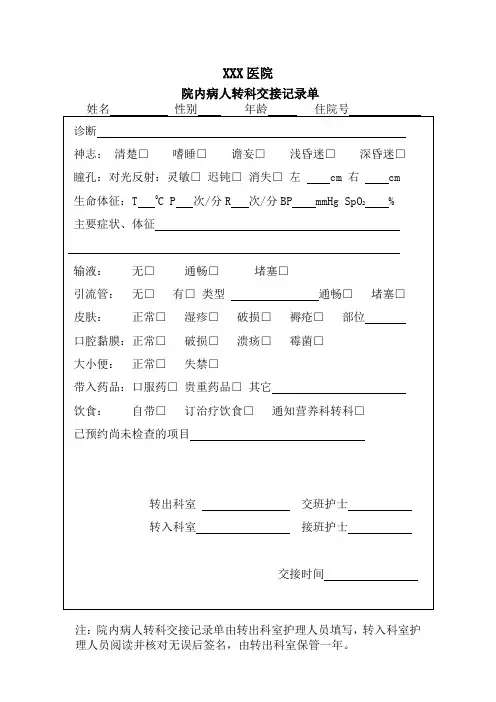 XXX医院
院内病人转科交接记录单
姓名 性别 年龄 住院号
诊断
神志: 清楚□ 嗜睡□ 谵妄□ 浅昏迷□ 深昏迷□
瞳孔:对光反射:灵敏□ 迟钝□ 消失□ 左 cm 右 cm
生命体征:T ⁰C P 次/分 R 次/分 BP mmHg SpO₂ %
主要症状、体征
输液: 无□ 通畅□ 堵塞□
引流管: 无□ 有□ 类型 通畅□ 堵塞□
皮肤: 正常□ 湿疹□ 破损□ 褥疮□ 部位
口腔黏膜:正常□ 破损□ 溃疡□ 霉菌□
大小便: 正常□ 失禁□
带入药品:口服药□ 贵重药品□ 其它
饮食: 自带□ 订治疗饮食□ 通知营养科转科□
已预约尚未检查的项目
转出科室 交班护士
转入科室 接班护士
交接时间
注:院内病人转科交接记录单由转出科室护理人员填写,转入科室护
理人员阅读并核对无误后签名,由转出科室保管一年。